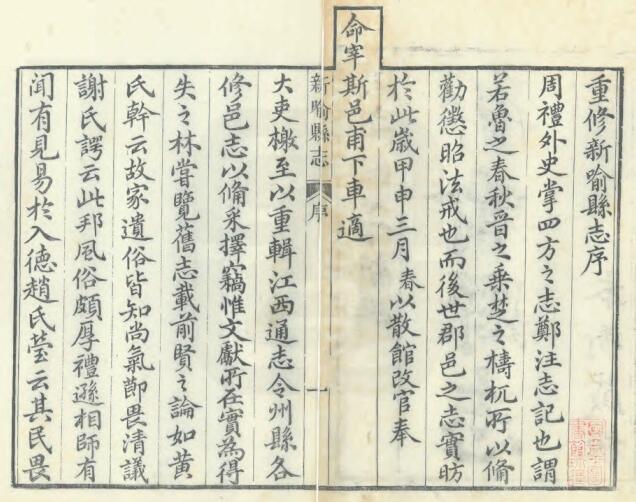 重修新喻縣志序
周禮外史掌四方之志鄭注志記也謂
若魯之春秋晉之乗楚之檮杌所以備
勸懲昭法戒也而後世郡邑之志實昉
於此歲甲申三月春以散館改官奉
命宰斯邑甫下車適
新喻縣志 序 一
大吏檄至以重輯江西通志令州縣各
修邑志以備采擇竊惟文獻所在實為得
失之林嘗覽舊志載前賢之論如黄
氏幹云故家遺俗皆知尚氣節畏清議
謝氏諤云此邦風俗頗厚禮遜相師有
聞有見易於入德趙氏瑩云其民畏